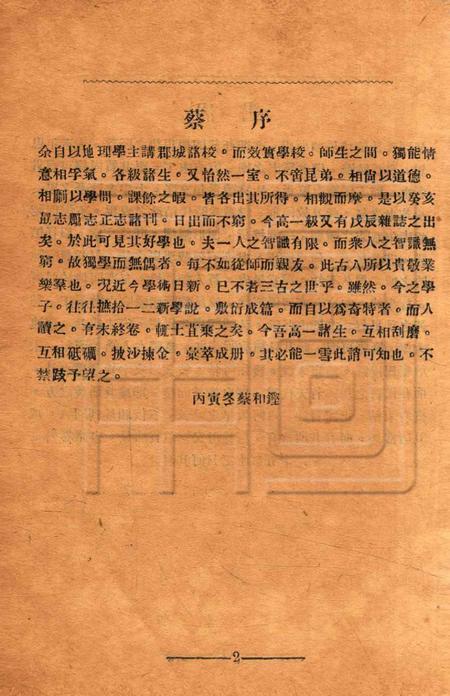 蔡序
余自以地理學主講郡城諸校。而效實學校。師生之間。獨能情
意相孚氣。各級諸生。又怡然一室。不啻昆弟。相尙以道德。
相勵以學問。課餘之暇。皆各出其所得。相觀而摩。是以癸亥
最志勵志正志諸刊。日出而不窮。今高一級又有戊辰雜誌之出
矣。於此可見其好學也。夫一人之智識有限。而衆人之智識無
窮。故獨學而無偶者。每不如從師而親友。此古人所以貴敬業
樂羣也。况近今學術日新。已不若三古之世乎。雖然。今之學
子。往往摭拾一二新學說。敷衍成篇。而自以爲奇特者。而人
讀之。有未終卷。輒土苴棄之矣。今吾高一諸生。互相刮磨。
互相砥礪。披沙揀金。彙萃成册。其必能一雪此誚可知也。不
禁跂予望之。
丙寅冬蔡和鏗
2